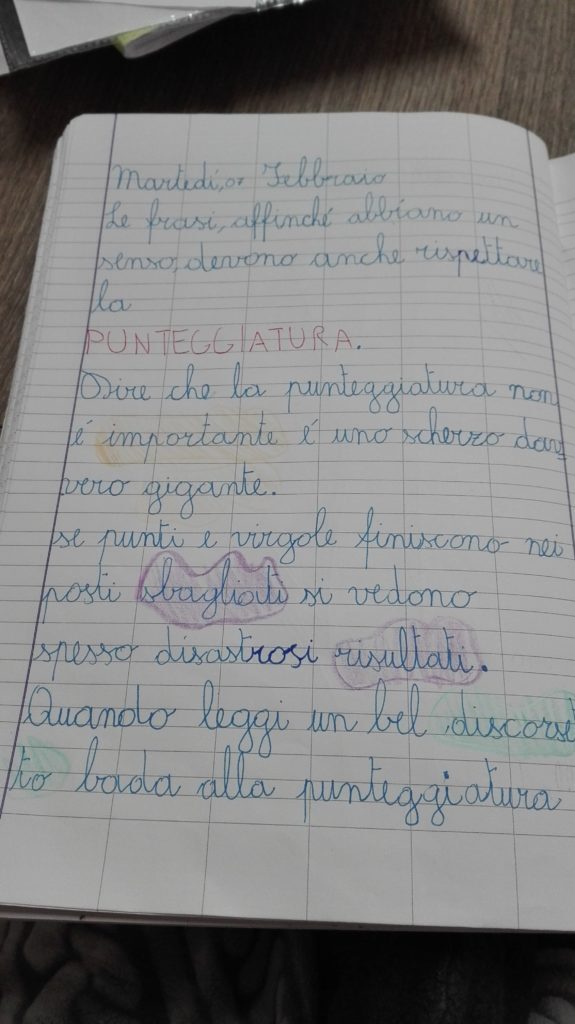 Martedí, 07 Febbraio
Le frasi, affinché abbiano un
senso, devono anche rispettare
la
PUNTEGGIATURA.
Dire che la punteggiatura non
é importante é uno scherzo dav
vero gigante.
se punti e virgole finiscono nei
posti sbagliati si vedono
spesso disastrosi risultati.
Quando leggi un bel discorset
to bada alla punteggiatura